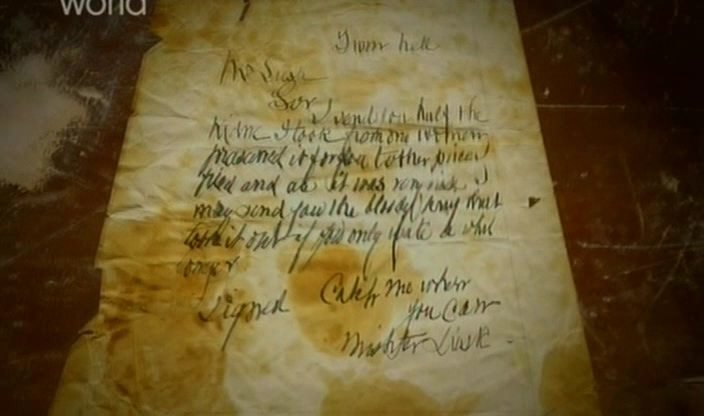 world
From hell
Mr Lusk
Sor
I send you half the
Kidne I took from one women
prasarved it for you tother piece I
fried and ate it was very nise I
may send you the bloody knif that
took it out if you only wate a whil
longer
signed Catch me when
you can
Mishter Lusk